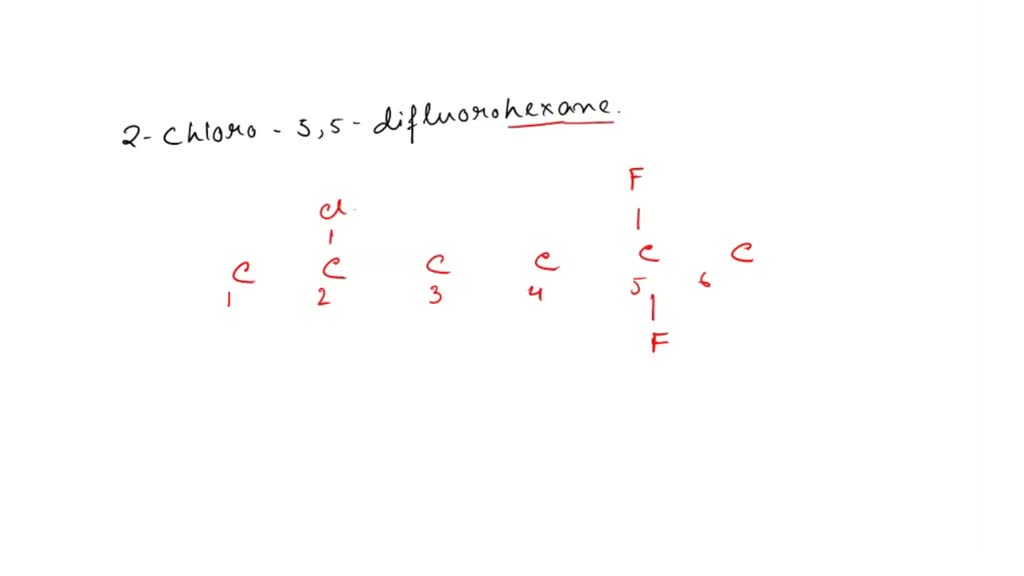 2-chloro-5,5-difluorohexane.
F
cl
C C C C C C
1 2 3 4 5 6
F